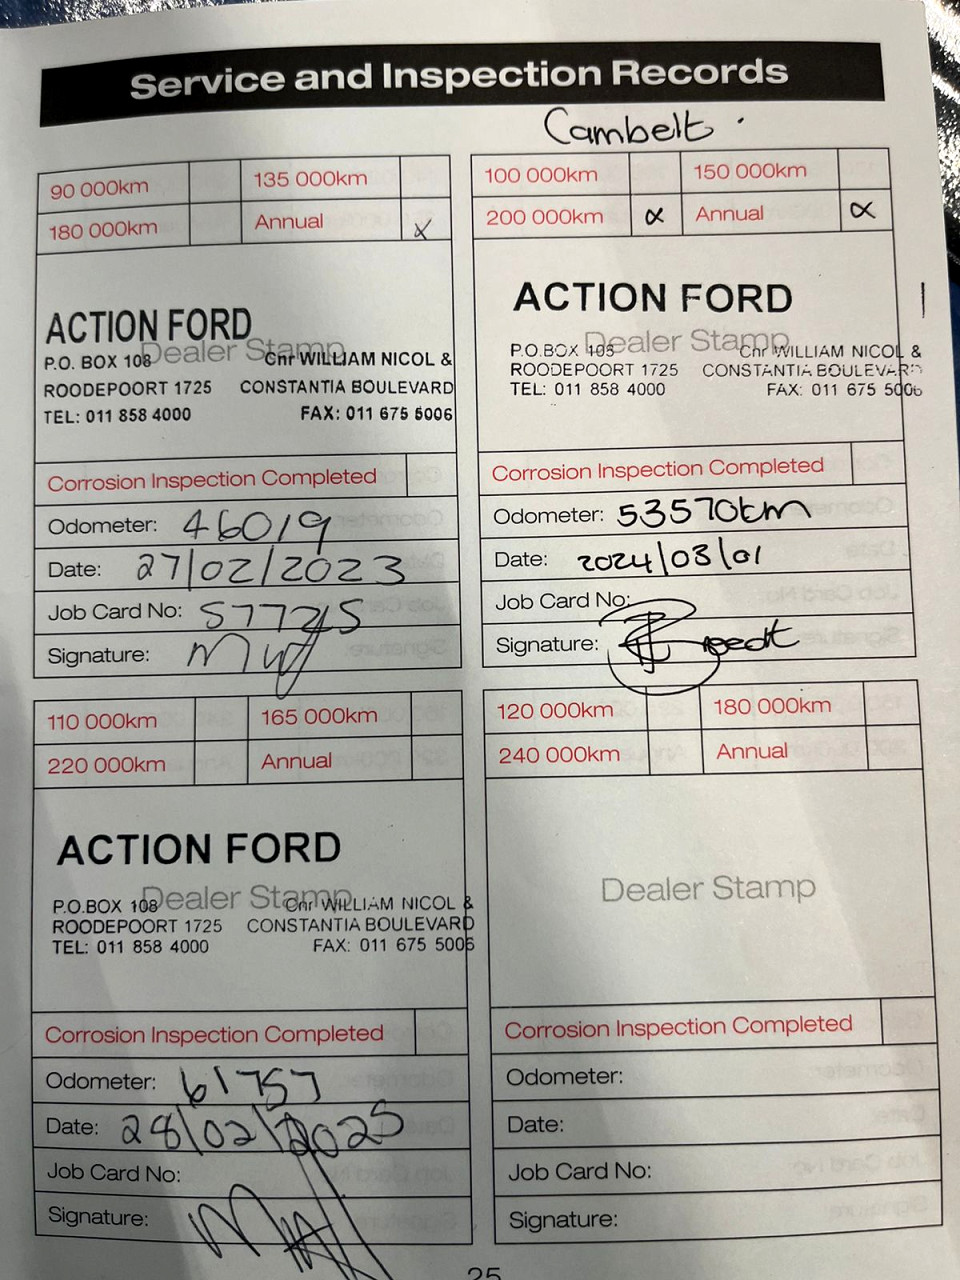 Service and Inspection Records
Cambelt
90 000km 135 000km
180 000km Annual x
ACTION FORD
Dealer Stamp
P.O. BOX 108 Cnr WILLIAM NICOL &
ROODEPOORT 1725 CONSTANTIA BOULEVARD
TEL: 011 858 4000 FAX: 011 675 5006
Corrosion Inspection Completed
Odometer: 46019
Date: 27/02/2023
Job Card No: 57725
Signature:
100 000km 150 000km
200 000km x Annual x
ACTION FORD
Dealer Stamp
P.O.BOX 108 Cnr WILLIAM NICOL &
ROODEPOORT 1725 CONSTANTIA BOULEVARD
TEL: 011 858 4000 FAX: 011 675 5006
Corrosion Inspection Completed
Odometer: 53570km
Date: 2024/03/01
Job Card No:
Signature:
110 000km 165 000km
220 000km Annual
ACTION FORD
Dealer Stamp
P.O.BOX 108 Cnr WILLIAM NICOL &
ROODEPOORT 1725 CONSTANTIA BOULEVARD
TEL: 011 858 4000 FAX: 011 675 5006
Corrosion Inspection Completed
Odometer: 61757
Date: 28/02/2025
Job Card No:
Signature:
120 000km 180 000km
240 000km Annual
Dealer Stamp
Corrosion Inspection Completed
Odometer:
Date:
Job Card No:
Signature:
25